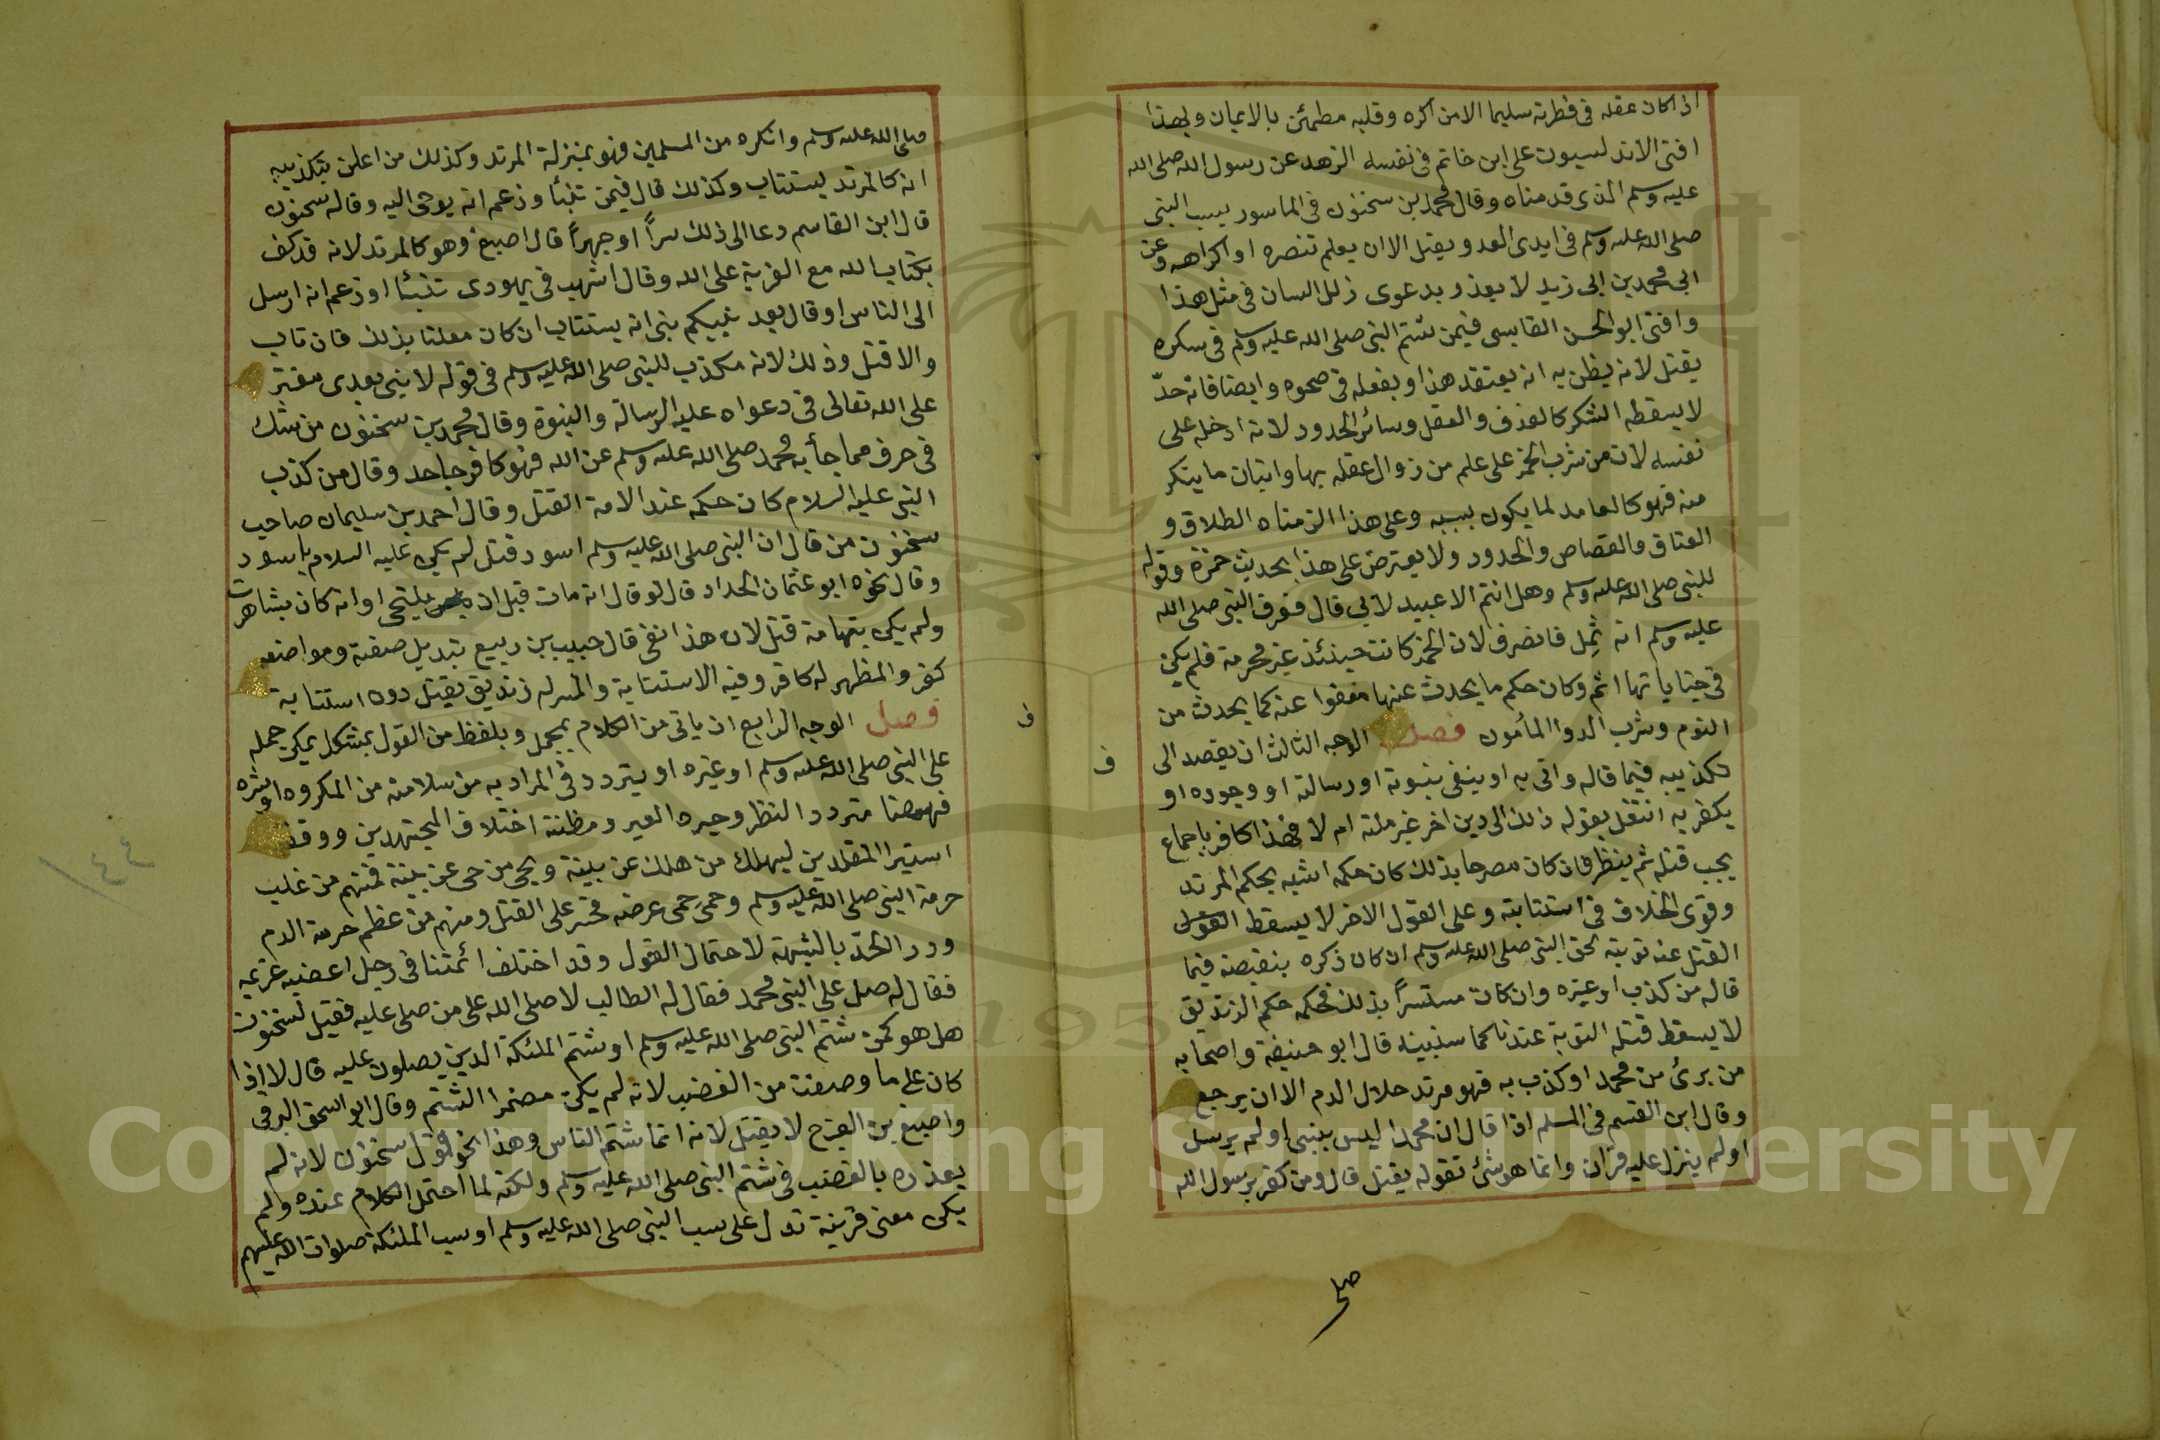 اذا كان عقله فى فطرته سليما الا من اكره وقلبه مطمئن بالايمان وبهذا
افتى الاندلسيون على ابن خاتم فى نفسه الزهد عن رسول الله صلى الله
عليه وسلم الذى قدمناه وقال محمد بن سحنون فى الماسور يسب النبى
صلى الله عليه وسلم فى ايدى العدو يقتل الا ان يعلم تنصره او اكراهه وعن
ابى محمد بن ابى زيد لا يعذر بدعوى زلل اللسان فى مثل هذا
وافتى ابو الحسن القابسى فيمن شتم النبى صلى الله عليه وسلم فى سكره
يقتل لانه يظن به انه يعتقد هذا ويفعله فى صحوه وايضا فانه حدّ
لا يسقطه السكر كالقذف والقتل وسائر الحدود لانه ادخله على
نفسه لان من شرب الخمر على علم من زوال عقله بها واتيان ما ينكر
منه فهو كالعامد لما يكون بسببه وعلى هذا الزمناه الطلاق و
العتاق والقصاص والحدود ولا يعترض على هذا بحديث حمزة وقوله
للنبى صلى الله عليه وسلم وهل انتم الا عبيد لابى قال فعرف النبى صلى الله
عليه وسلم انه ثمل فانصرف لان الخمر كانت حينئذ غير محرمة فلم يكن
فى جناياتها اثم وكان حكم ما يحدث عنها معفوا عنه كما يحدث من
النوم وشرب الدوا المأمون فصل الوجه الثالث ان يقصد الى
تكذيبه فيما قاله واتى به او ينفى نبوته او رسالته او وجوده او
يكفر به انتقل بقوله ذلك الى دين اخر غير ملته ام لا فهذا كافر باجماع
يجب قتله ثم ينظر فان كان مصرحا بذلك كان حكمه اشبه بحكم المرتد
وقوى الخلاف فى استتابته وعلى القول الاخر لا يسقط القول
القتل عنه توبته لحق النبى صلى الله عليه وسلم ان كان ذكره بنقيصة فيما
قاله من كذب او غيره وان كان مستسراً بذلك فحكمه حكم الزنديق
لا يسقط قتله التوبة عندنا كما سنبينه قال ابو حنيفة واصحابه
من برئ من محمد او كذب به فهو مرتد حلال الدم الا ان يرجع
وقال ابن القسم فى المسلم اذا قال ان محمدا ليس بنبى او لم يرسل
او لم ينزل عليه قرآن وانما هو شئ تقوله يقتل قال ومن كفر برسول الله
صلى
ف
صلى الله عليه وسلم وانكره من المسلمين فهو بمنزلة المرتد وكذلك من اعلن بتكذيبه
انه كالمرتد يستتاب وكذلك قال فيمن تنبئا وزعم انه يوحى اليه وقاله سحنون
قال ابن القاسم دعا الى ذلك سراً او جهراً قال اصبغ وهو كالمرتد لانه قد كفر
بكتاب الله مع الفرية على الله وقال اشهب فى يهودى تنبئا او زعم انه ارسل
الى الناس او قال بعد نبيكم نبى انه يستتاب ان كان معلنا بذلك فان تاب
والا قتل وذلك لانه مكذب للنبى صلى الله عليه وسلم فى قوله لا نبى بعدى مفتر
على الله تعالى فى دعواه عليه الرسالة والنبوة وقال محمد بن سحنون من شك
فى حرف مما جأ به محمد صلى الله عليه وسلم عن الله فهو كافر جاحد وقال من كذب
النبى عليه السلام كان حكمه عند الامة القتل وقال احمد بن سليمان صاحب
سحنون من قال ان النبى صلى الله عليه وسلم اسود قتل لم يكن عليه السلام باسود
وقال نحوه ابو عثمان الحداد قال لو قال انه مات قبل ان يلتحى او انه كان بتاهرت
ولم يكن بتهامة قتل لان هذا نفى قال حبيب بن ربيع تبديل صفته ومواضعه
كفر والمظهر له كافر وفيه الاستتابة والمسر له زنديق يقتل دون استتابة
فصل الوجه الرابع ان ياتى من الكلام بمجمل ويلفظ من القول بمشكل يمكن حمله
على النبى صلى الله عليه وسلم او غيره او يتردد فى المراد به من سلامته من المكروه او شره
فههنا متردد النظر وحيرة العبر ومظنة اختلاف المجتهدين ووقفة
استبرا المقلدين ليهلك من هلك عن بينة ويحى من حى عن بينة فمنهم من غلب
حرمة النبى صلى الله عليه وسلم وحمى حمى عرضه فجسر على القتل ومنهم من عظم حرمة الدم
ودرر الحدّ بالشبهة لاحتمال القول وقد اختلف ائمتنا فى رجل اغضبه غريمه
فقال له صل على النبى محمد فقال له الطالب لا صلى الله على من صلى عليه فقيل لسحنون
هل هو كمن شتم النبى صلى الله عليه وسلم او شتم الملئكة الذين يصلون عليه قال لا اذا
كان على ما وصفت من الغضب لانه لم يكن مضمرا الشتم وقال ابو اسحق البرقى
واصبغ بن الفرج لا يقتل لانه انما شتم الناس وهذا نحو قول سحنون لانه لم
يعذره بالغضب فى شتم النبى صلى الله عليه وسلم ولكنه لما احتمل الكلام عنده ولم
يكن معنى قرينة تدل على سب النبى صلى الله عليه وسلم او سب الملئكة صلوات الله عليهم
ف
١٤٤
1957
Copyright © King Saud University